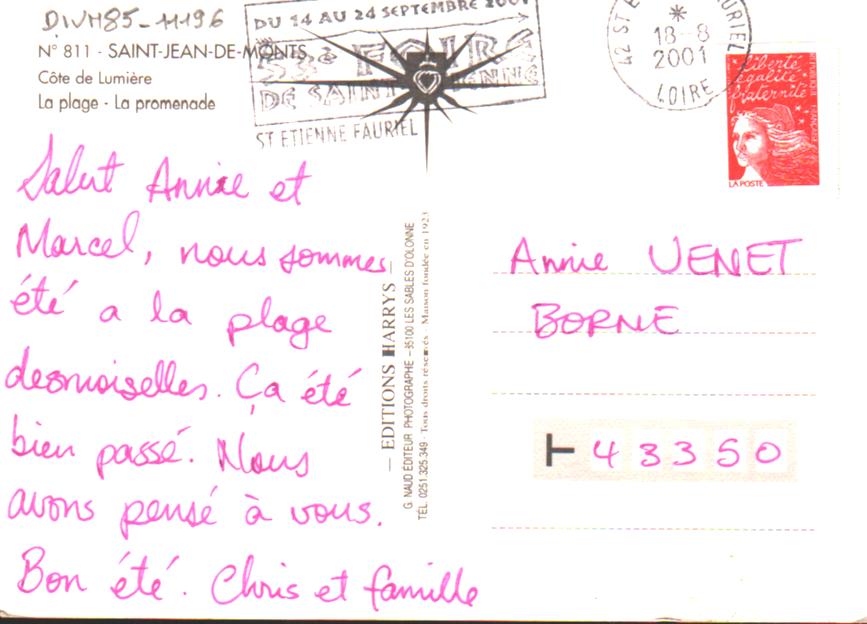 DIVM85-11196
N° 811 - SAINT-JEAN-DE-MONTS
Côte de Lumière
La plage - La promenade
DU 14 AU 24 SEPTEMBRE 2001
53e FOIRE
DE SAINT ETIENNE
ST ETIENNE FAURIEL
42 ST E FAURIEL
18-8
2001
LOIRE
liberté
égalité
fraternité
RÉPUBLIQUE FRANÇAISE
LA POSTE
Salut Annie et
Marcel, nous sommes
été a la plage
desmoiselles. Ça été
bien passé. Nous
avons pensé à vous.
Bon été. Chris et famille
— EDITIONS HARRYS —
G. NAUD ÉDITEUR PHOTOGRAPHE – 85100 LES SABLES D'OLONNE
TÉL. 0251.325.349 - Tous droits réservés - Maison fondée en 1923
Annie VENET
BORNE
T 43350